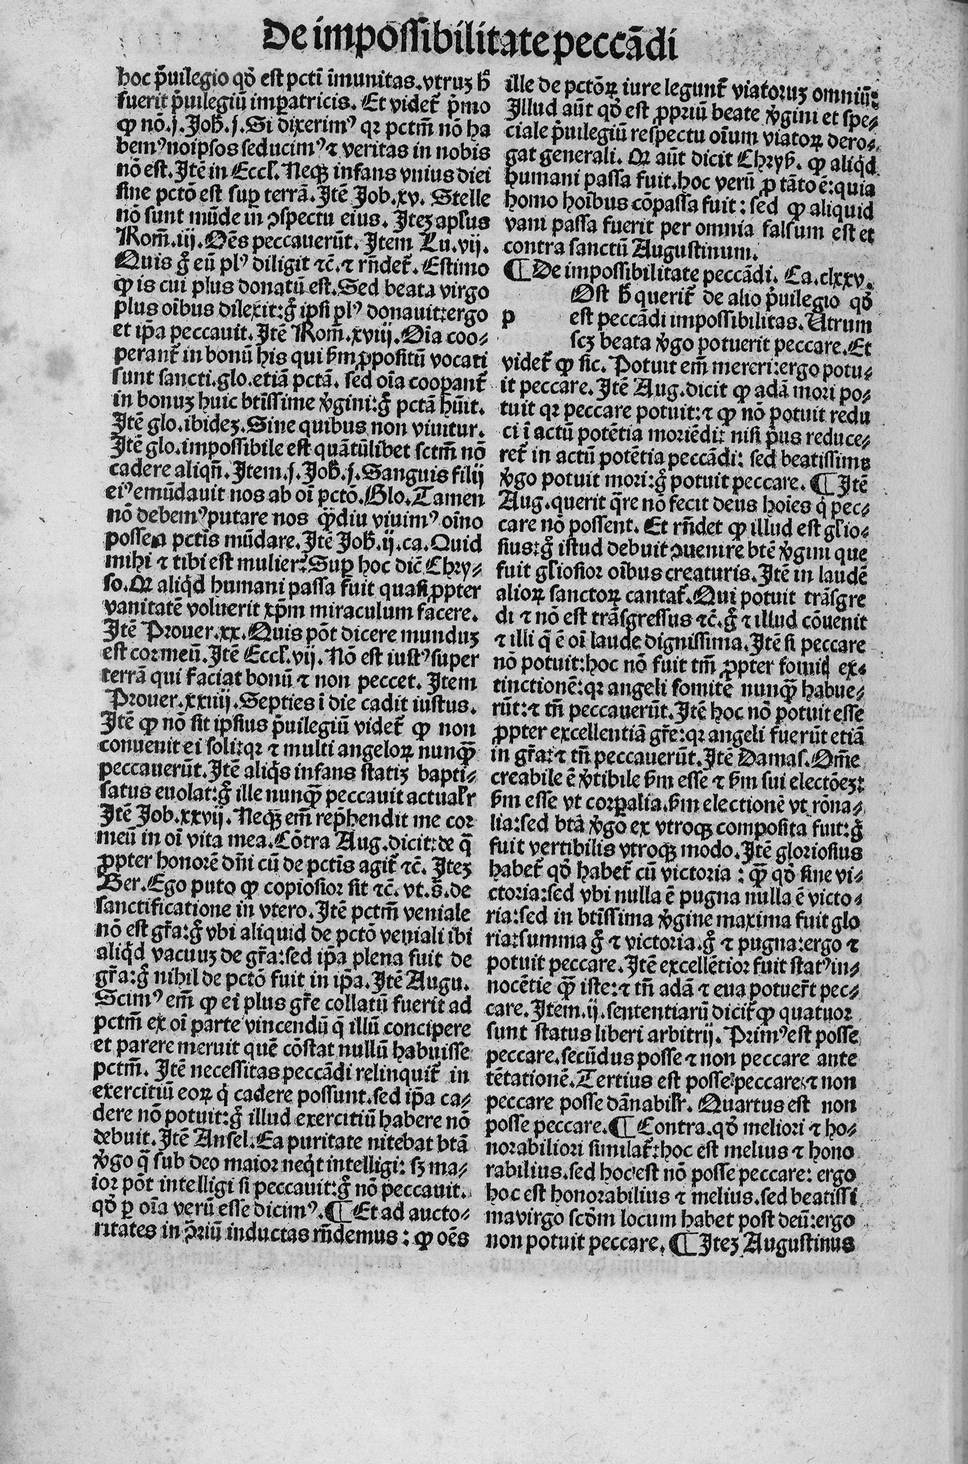 De impossibilitate peccādi
hoc p̄uilegio qḋ est pctī īmunitas. vtruꝫ ḣ
fuerit p̄uilegiū imperatricis. Et videt̄ p̄mo
ꝙ nō. j. Joh̄. j. Si dixerimꝰ qꝛ pctm̄ nō ha
bemꝰ noipsos seducimꝰ ⁊ veritas in nobis
nō est. Itē in Eccl. Neqꝫ infans vnius diei
sine pctō est suꝑ terrā. Itē Job. xv. Stelle
nō sunt mūde in ↄspectu eius. Iteꝫ apl̄us
Rom̄. iij. Oēs peccauerūt. Item Lu. vij.
Quis g̊ eū plꝰ diligit ⁊c̄. ⁊ rn̄det̄. Estimo
ꝙ is cui plus donatū est. Sed beata virgo
plus oībus dilexit: g̊ ipsi plꝰ donauit: ergo
et ip̄a peccauit. Itē Rom̄. xviij. Oīa coo-
perant̄ in bonū his qui ẜm ꝓpositū vocati
sunt sancti. glo. etiā pctā. sed oīa cooꝑant̄
in bonuꝫ huic btīssime v̊gini: g̊ pctā hūit.
Itē glo. ibideꝫ. Sine quibus non viuitur.
Itē glo. impossibile est quātūlibet sctm̄ nō
cadere aliqn̄. Item. j. Joh̄. j. Sanguis filij
eiꝰ emūdauit nos ab oī pctō. Glo. Tamen
nō debemꝰ putare nos ꝙ̄diu viuimꝰ oīno
posse a pctīs mūdare. Itē Joh̄. ij. ca. Quid
mihi ⁊ tibi est mulier? Suꝑ hoc diē Chry-
so. Qꝛ aliqd̓ humani passa fuit quasi ꝓpter
vanitatē voluerit xp̄m miraculum facere.
Itē Prouer. xx. Quis pōt dicere munduꝫ
est cor meū. Itē Eccl. vij. Nō est iustꝰ super
terrā qui faciat bonū ⁊ non peccet. Item
Prouer. xxiiij. Septies ī die cadit iustus.
Itē ꝙ nō sit ipsius p̄uilegiū videt̄ ꝙ non
conuenit ei soli: qꝛ ⁊ multi angeloꝝ nunꝙ̄
peccauerūt. Itē aliq̇s infans statiꝫ bapti-
satus euolat: g̊ ille nunꝙ̄ peccauit actualr̄
Itē Job. xxvij. Neqꝫ em̄ rep̄hendit me cor
meū in oī vita mea. Cōtra Aug. dicit: de q̄
ꝓpter honorē dn̄i cū de pctīs agit̄ ⁊c̄. Iteꝫ
Ber. Ego puto ꝙ copiosior sit ⁊c̄. vt. s̄. de
sanctificatione in vtero. Itē pctm̄ veniale
nō est gr̄a: g̊ vbi aliquid de pctō veniali ibi
aliqd̓ vacuuꝫ de gr̄a: sed ip̄a plena fuit de
gr̄a: g̊ nihil de pctō fuit in ip̄a. Itē Augu.
Scimꝰ em̄ ꝙ ei plus gr̄e collatū fuerit ad
pctm̄ ex oī parte vincendū q̄ illū concipere
et parere meruit quē cōstat nullū habuisse
pctm̄. Itē necessitas peccādi relinquit̄ in
exercitiū eoꝝ q̇ cadere possunt. sed ip̄a ca-
dere nō potuit: g̊ illud exercitiū habere nō
debuit. Itē Ansel. Ea puritate nitebat btā
v̊go q̄ sub deo maior neq̇t intelligi: sꝫ ma-
ior pōt intelligi si peccauit: g̊ nō peccauit.
qḋ ꝑ oīa verū esse dicimꝰ. ¶ Et ad aucto-
ritates in ↄ̄riū inductas rn̄demus: ꝙ oēs
ille de pctōꝝ iure legunt̄ viatoruꝫ omniū:
Illud aūt qḋ est ꝓpriū beate v̊gini et spe-
ciale p̄uilegiū respectu oīum viatoꝝ dero-
gat generali. Qꝛ aūt dicit Chryẜ. ꝙ aliqd̓
humani passa fuit. hoc verū ꝓ tāto ē: quia
homo hoībus cōpassa fuit: sed ꝙ aliquid
vani passa fuerit per omnia falsum est et
contra sanctū Augustinum.
¶ De impossibilitate peccādi. Ca. clxxv.
p Ost ḣ querit̄ de alio p̄uilegio qḋ
est peccādi impossibilitas. Utrum
scꝫ beata v̊go potuerit peccare. Et
videt̄ ꝙ sic. Potuit em̄ mereri: ergo potu-
it peccare. Itē Aug. dicit ꝙ adā mori po-
tuit qꝛ peccare potuit: ⁊ ꝙ nō potuit redu
ci ī actū potētia moriēdi: nisi p̄us reduce-
ret̄ in actū potētia peccādi: sed beatissima
v̊go potuit mori: g̊ potuit peccare. ¶ Itē
Aug. querit q̄re nō fecit deus hoīes q̇ pec-
care nō possent. Et rn̄det ꝙ illud est gl̄io-
sius: g̊ istud debuit ↄuenire btē v̊gini que
fuit gl̄iosior oībus creaturis. Itē in laudē
alioꝝ sanctoꝝ cantat̄. Qui potuit trāsgre
di ⁊ nō est trāsgressus ⁊c̄. g̊ ⁊ illud cōuenit
⁊ illi q̄ ē oī laude dignissima. Itē si peccare
nō potuit: hoc nō fuit tm̄ ꝓpter fomiṭ ex-
tinctionē: qꝛ angeli fomitē nunꝙ̄ habue-
rūt: ⁊ tn̄ peccauerūt. Itē hoc nō potuit esse
ꝓpter excellentiā gr̄e: qꝛ angeli fuerūt etiā
in gr̄a: ⁊ tn̄ peccauerūt. Itē Damas. Om̄e
creabile ē v̊tibile ẜm esse ⁊ ẜm sui electōeꝫ:
ẜm esse vt corꝑalia. ẜm electionē vt rōna-
lia: sed btā v̊go ex vtroqꝫ composita fuit: g̊
fuit vertibilis vtroqꝫ modo. Itē gloriosius
habet̄ qḋ habet̄ cū victoria: ꝙ̄ qḋ sine vi-
ctoria: sed vbi nulla ē pugna nulla ē victo-
ria: sed in btīssima v̊gine maxima fuit glo
ria: summa g̊ ⁊ victoria. g̊ ⁊ pugna: ergo ⁊
potuit peccare. Itē excellētior fuit statꝰ in-
nocētie ꝙ̄ iste: ⁊ tn̄ adā ⁊ eua potuer̄t pec-
care. Item. ij. sententiarū dicit̄ ꝙ quatuor
sunt status liberi arbitrij. Primꝰ est posse
peccare. secūdus posse ⁊ non peccare ante
tētationē. Tertius est posse peccare ⁊ non
peccare posse dānabilr̄. Quartus est non
posse peccare. ¶ Contra. qḋ meliori ⁊ ho-
norabiliori similat̄: hoc est melius ⁊ hono
rabilius. sed hoc est nō posse peccare: ergo
hoc est honorabilius ⁊ melius. sed beatissi
ma virgo scḋm locum habet post deū: ergo
non potuit peccare. ¶ Iteꝫ Augustinus